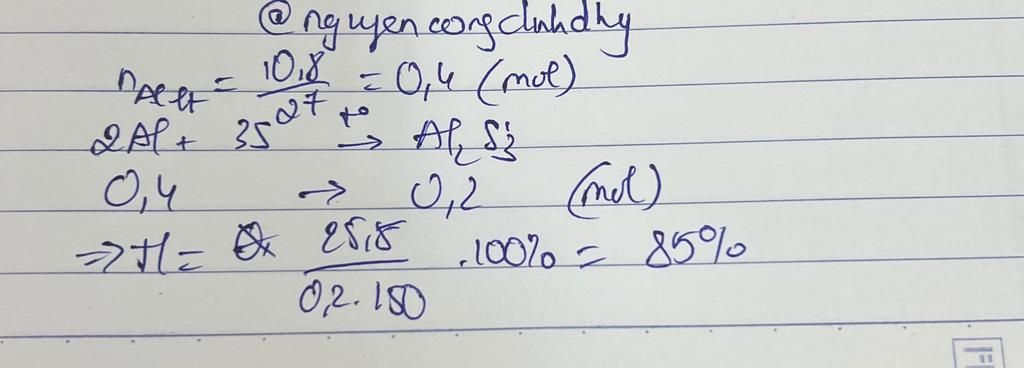 @nguyencongchuhdhy
n Al lt = 10,8 / 27 = 0,4 (mol)
2Al + 3S t° → Al₂S₃
0,4 → 0,2 (mol)
⇒ H = 25,5 / 0,2.150 .100% = 85%